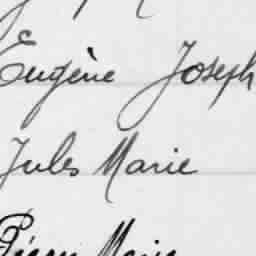 Eugène Joseph
Jules Marie
Pierre Marie